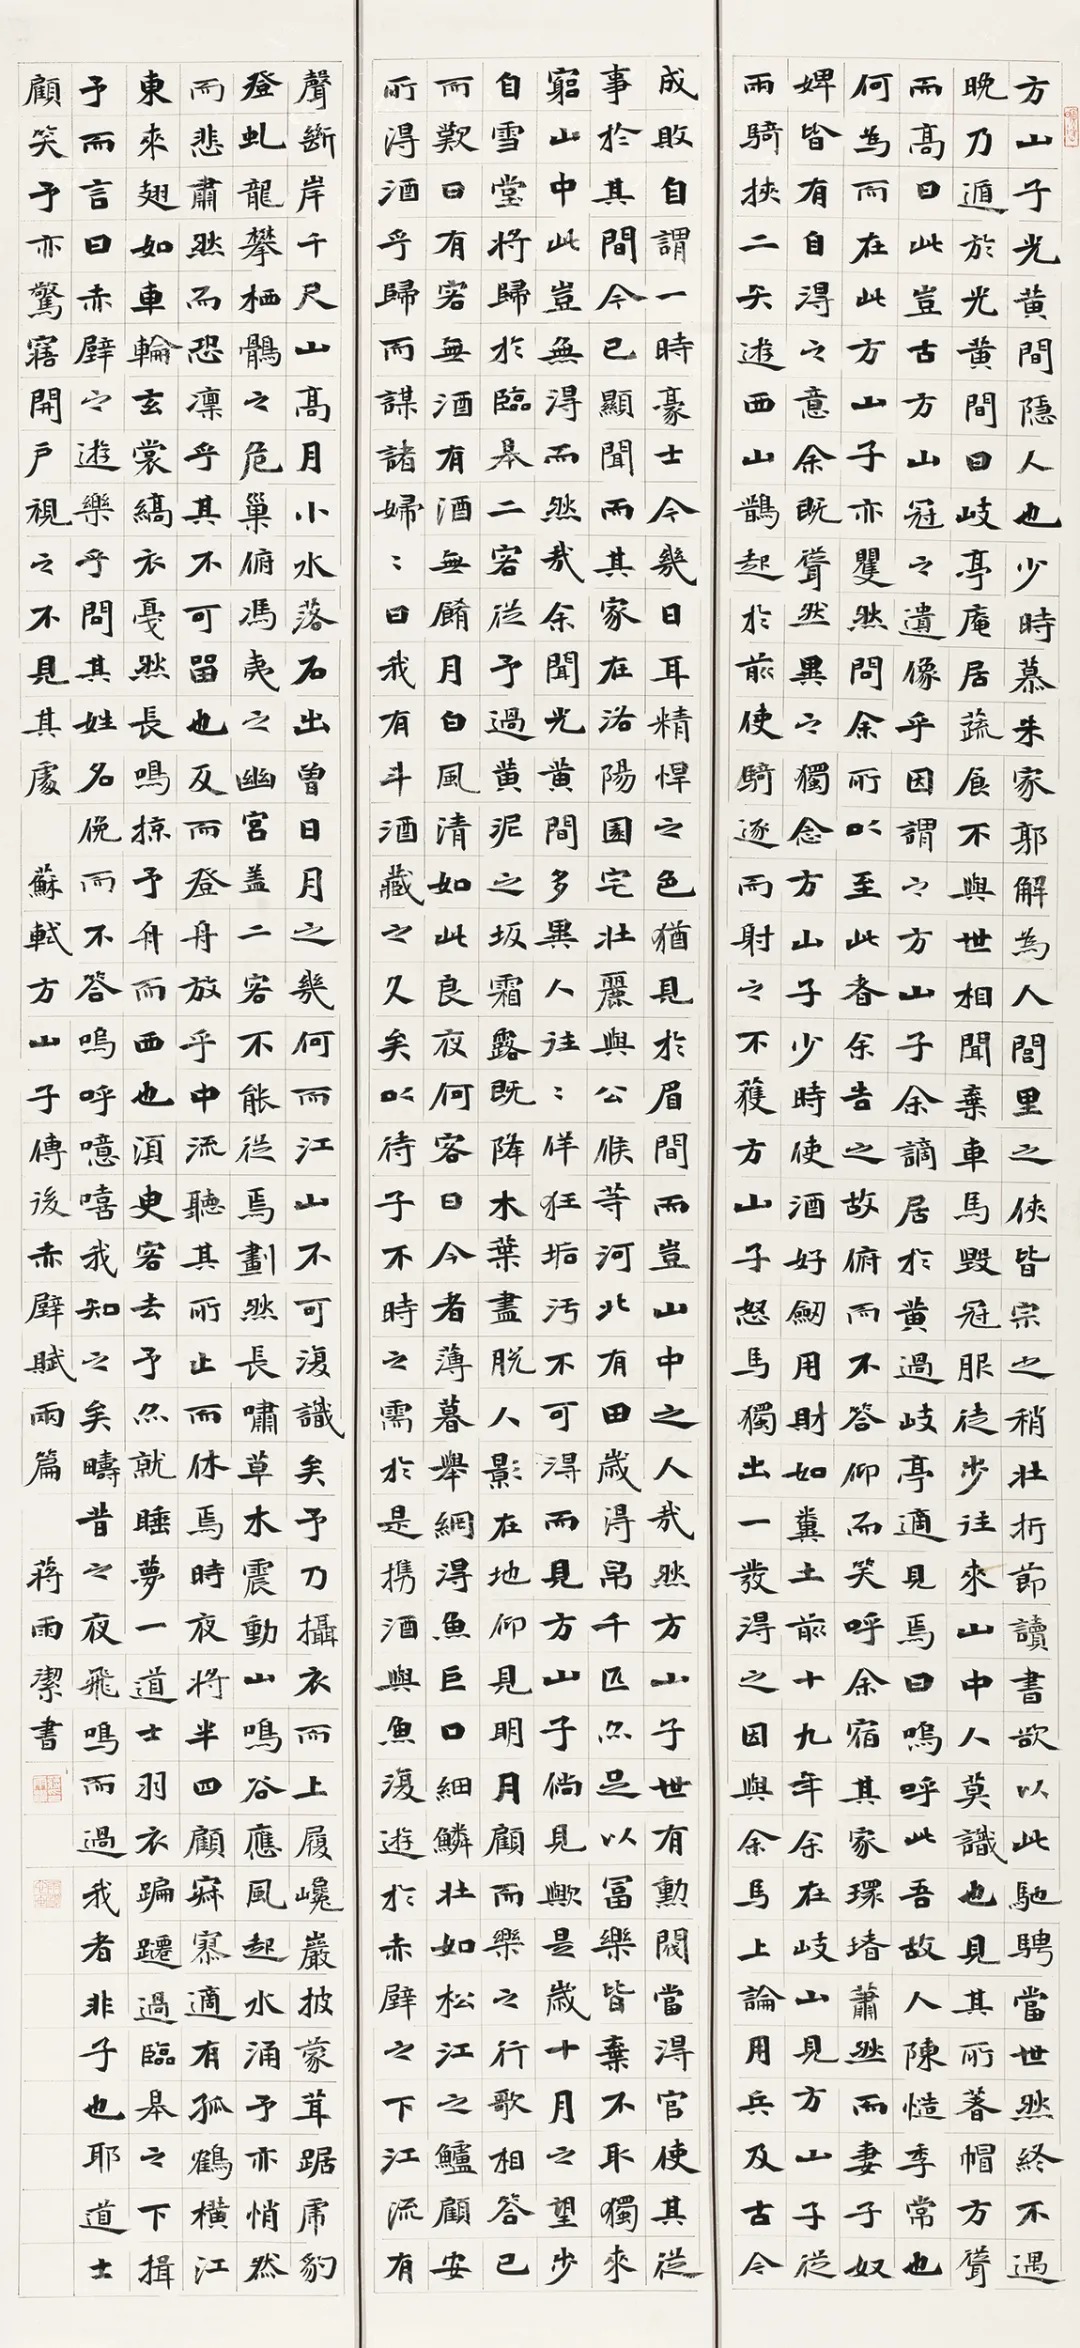 方山子光黄間隱人也少時慕朱家郭解為人閭里之俠皆宗之稍壯折節讀書欲以此馳騁當世然終不遇
晚乃遁於光黄間曰岐亭庵居蔬食不與世相聞棄車馬毀冠服徒步往來山中人莫識也見其所著帽方聳
而高曰此豈古方山冠之遺像乎因謂之方山子余謫居於黄過岐亭適見焉曰嗚呼此吾故人陳慥季常也
何為而在此方山子亦矍然問余所以至此者余告之故俯而不答仰而笑呼余宿其家環堵蕭然而妻子奴
婢皆有自得之意余既聳然異之獨念方山子少時使酒好劒用財如糞土前十九年余在岐山見方山子從
兩騎挾二矢遊西山鵲起於前使騎逐而射之不獲方山子怒馬獨出一發得之因與余馬上論用兵及古今
成敗自謂一時豪士今幾日耳精悍之色猶見於眉間而豈山中之人哉然方山子世有勳閥當得官使其從
事於其間今已顯聞而其家在洛陽園宅壯麗與公侯等河北有田歲得帛千匹亦足以富樂皆棄不取獨來
窮山中此豈無得而然哉余聞光黄間多異人往〻佯狂垢污不可得而見方山子倘見歟是歲十月之望步
自雪堂將歸於臨皋二客從予過黄泥之坂霜露既降木葉盡脫人影在地仰見明月顧而樂之行歌相答已
而歎曰有客無酒有酒無餚月白風清如此良夜何客曰今者薄暮舉網得魚巨口細鱗壯如松江之鱸顧安
所得酒乎歸而謀諸婦〻曰我有斗酒藏之久矣以待子不時之需於是携酒與魚復遊於赤壁之下江流有
聲斷岸千尺山高月小水落石出曾日月之幾何而江山不可復識矣予乃攝衣而上履巉巖披蒙茸踞虎豹
登虬龍攀栖鶻之危巢俯馮夷之幽宮盖二客不能從焉劃然長嘯草木震動山鳴谷應風起水涌予亦悄然
而悲肅然而恐凛乎其不可留也反而登舟放乎中流聽其所止而休焉時夜將半四顧寂寥適有孤鶴橫江
東來翅如車輪玄裳縞衣戛然長鳴掠予舟而西也須臾客去予亦就睡夢一道士羽衣蹁躚過臨皋之下揖
予而言曰赤壁之遊樂乎問其姓名俛而不答嗚呼噫嘻我知之矣疇昔之夜飛鳴而過我者非子也耶道士
顧笑予亦驚寤開戶視之不見其處 蘇軾方山子傳後赤壁賦兩篇 蔣雨潔書